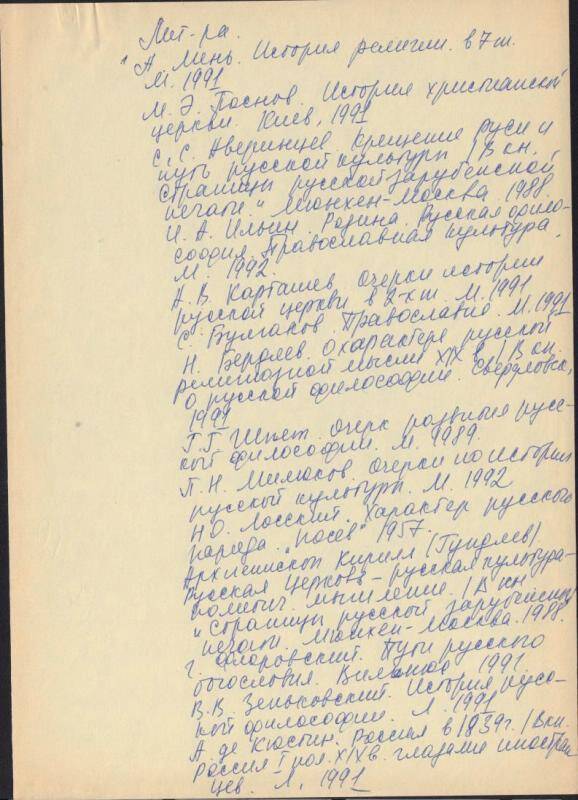 Лит-ра.
А. Мень. История религии. в 7 т.
М. 1991
М. Э. Поснов. История христианской
церкви. Киев, 1991
С. С. Аверинцев. Крещение Руси и
путь русской культуры / В кн.
Страницы русской зарубежной
печати." Мюнхен-Москва. 1988.
И. А. Ильин. Родина. Русская фило-
софия. Православная культура.
М. 1992.
А. В. Карташев. Очерки истории
русской церкви в 2-х т. М. 1991
С. Булгаков. Православие. М. 1991
Н. Бердяев. О характере русской
религиозной мысли XIX в. / В кн.
О русской философии. Свердловск,
1991
Г. Г. Шпет. Очерк развития русс-
кой философии. М. 1989.
П. Н. Милюков. Очерки по истории
русской культуры. М. 1992
Н О. Лосский. Характер русского
народа. "Посев" 1957.
Архиепископ Кирилл (Гундяев).
Русская церковь - русская культура-
политич. мышление. / В кн
"Страницы русской зарубежной
печати. Мюнхен-Москва. 1988.
Г. Флоровский. Пути русского
богословия. Вильнюс. 1991.
В. В. Зеньковский. История русс-
кой философии. Л. 1991
А. де Кюстин. Россия в 1839 г. / В кн.
Россия I пол. XIX в. глазами иностран
цев. Л. 1991